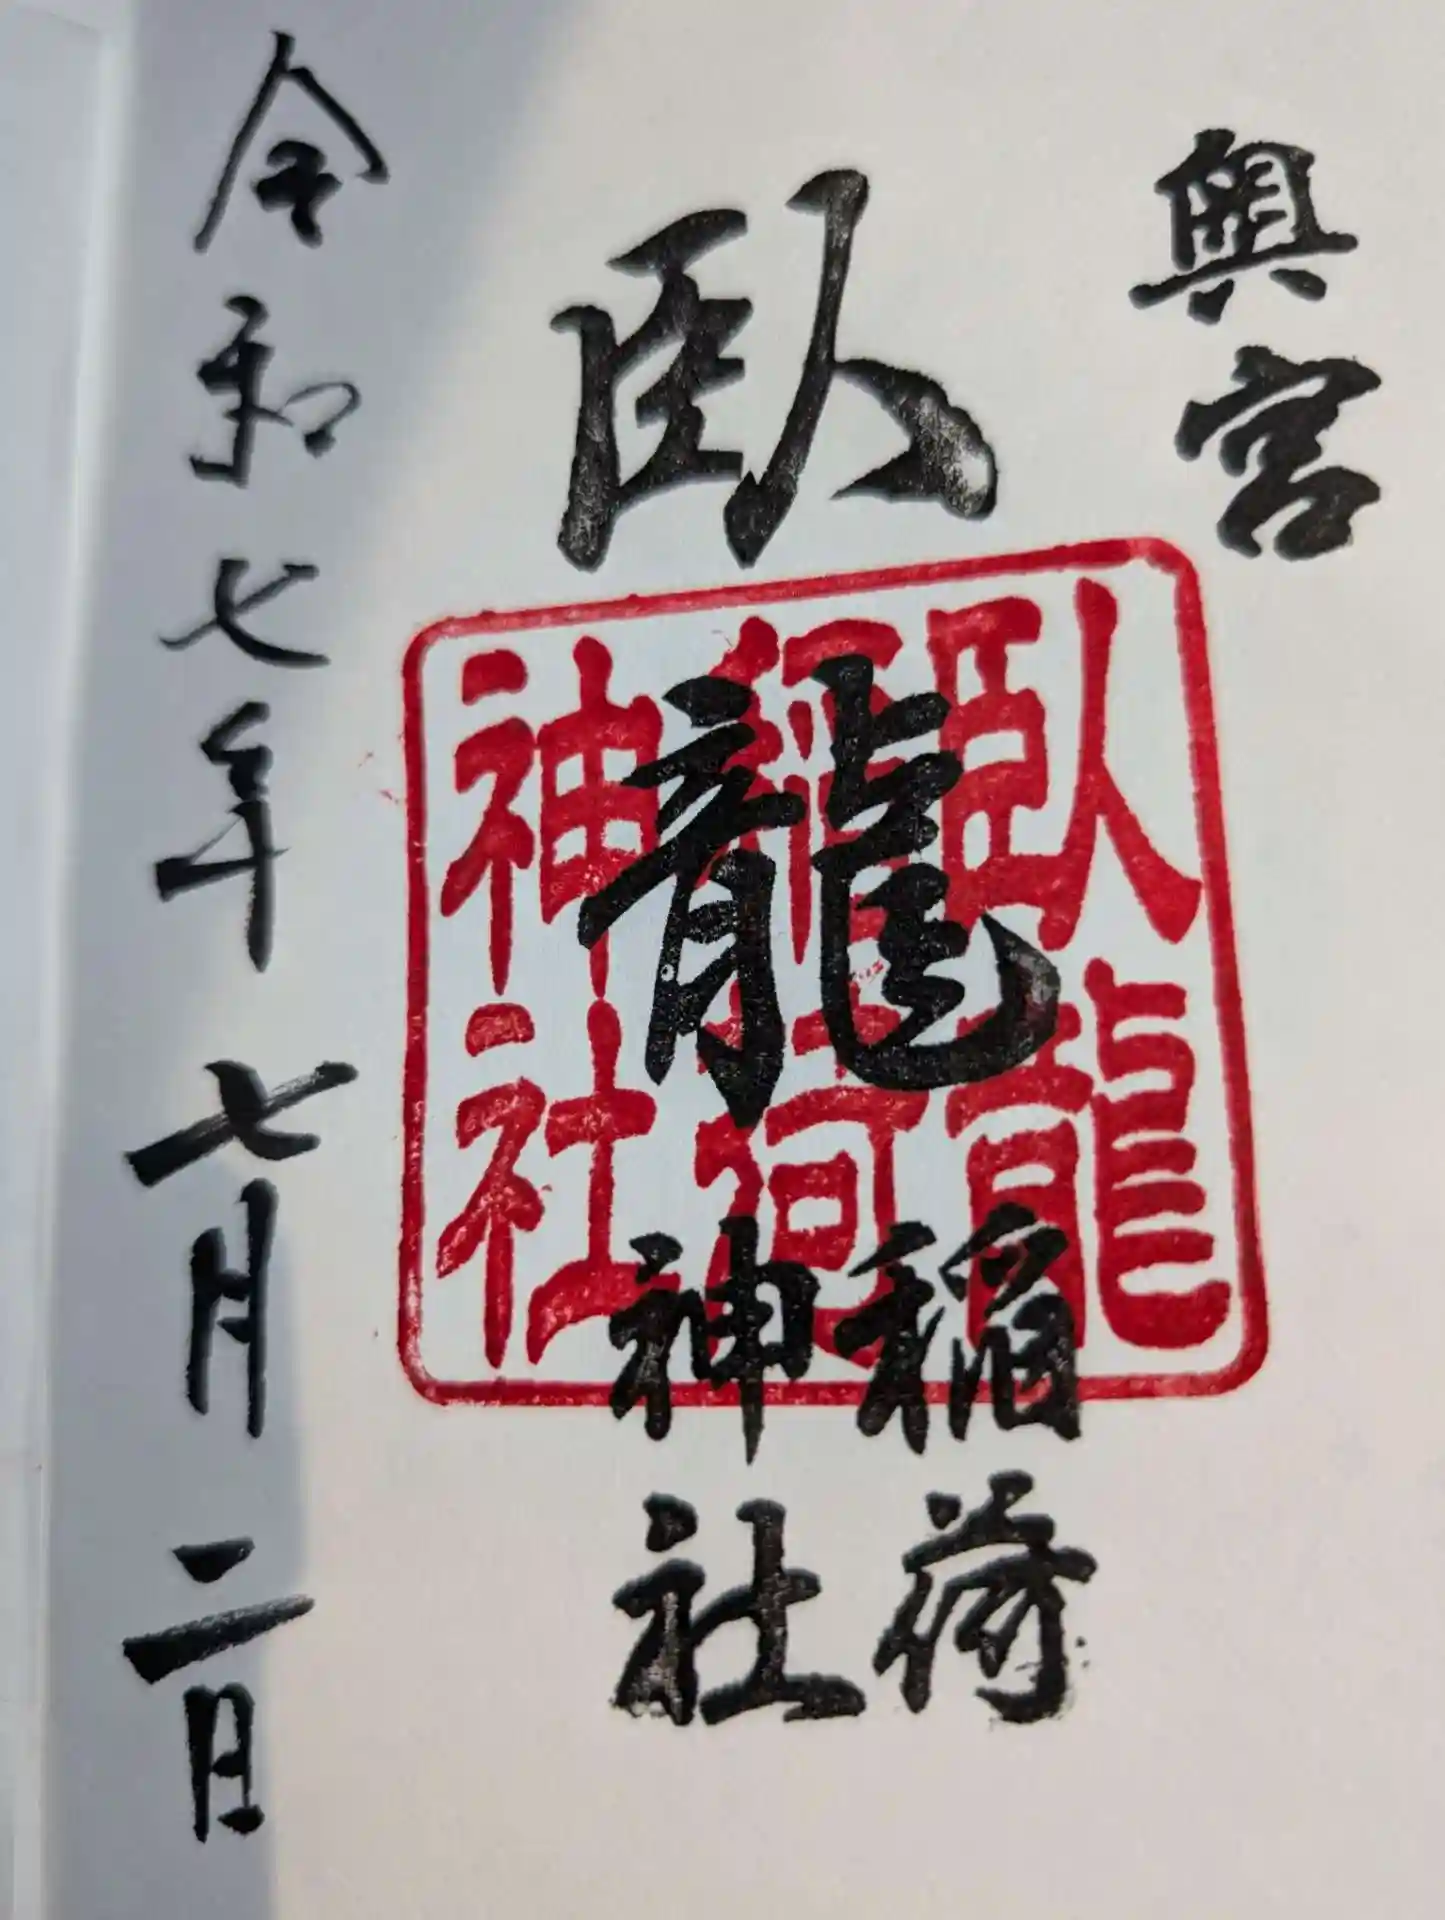 奥宮
臥龍
稲荷
神社
臥龍
稲荷
神社
令和七年七月二日